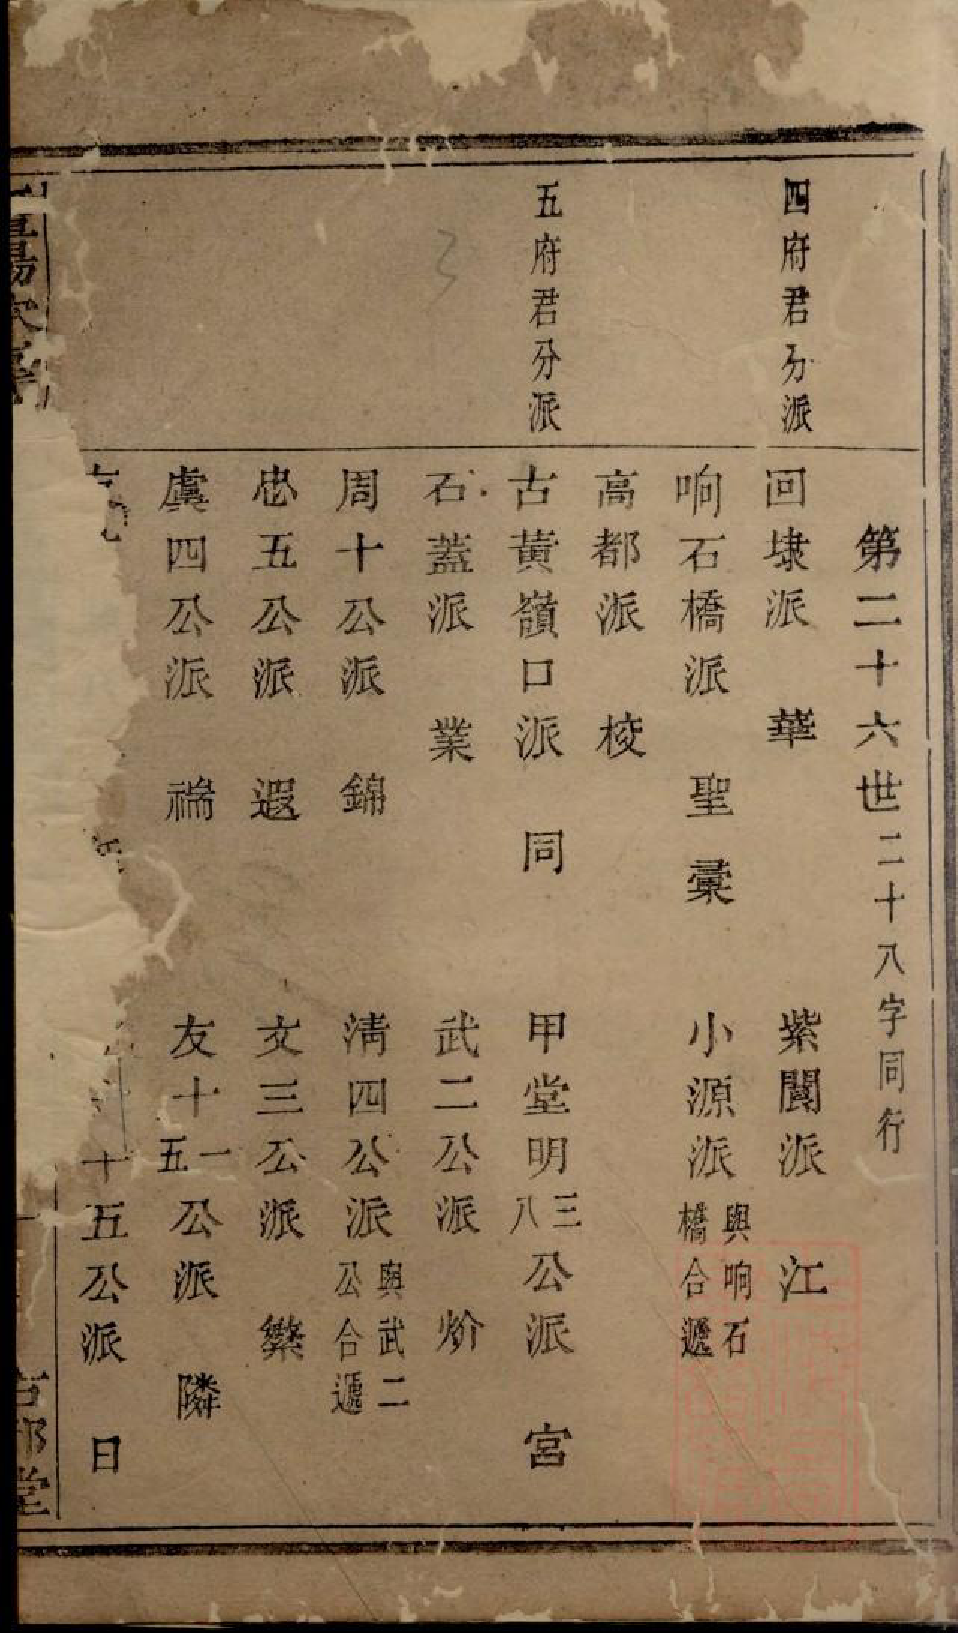 第二十六世二十八字同行
四府君分派
回埭派 華 紫閩派 江
响石橋派 聖彙 小源派與响石橋合遞
高都派 梭
五府君分派
古黃嶺口派 同 甲堂明三八公派 宮
石蓋派 業 武二公派 炌
周十公派 錦 清四公派與武二公合遞
忠五公派 遐 文三公派 繁
虞四公派 褍 友十一五公派 隣
十五公派 日